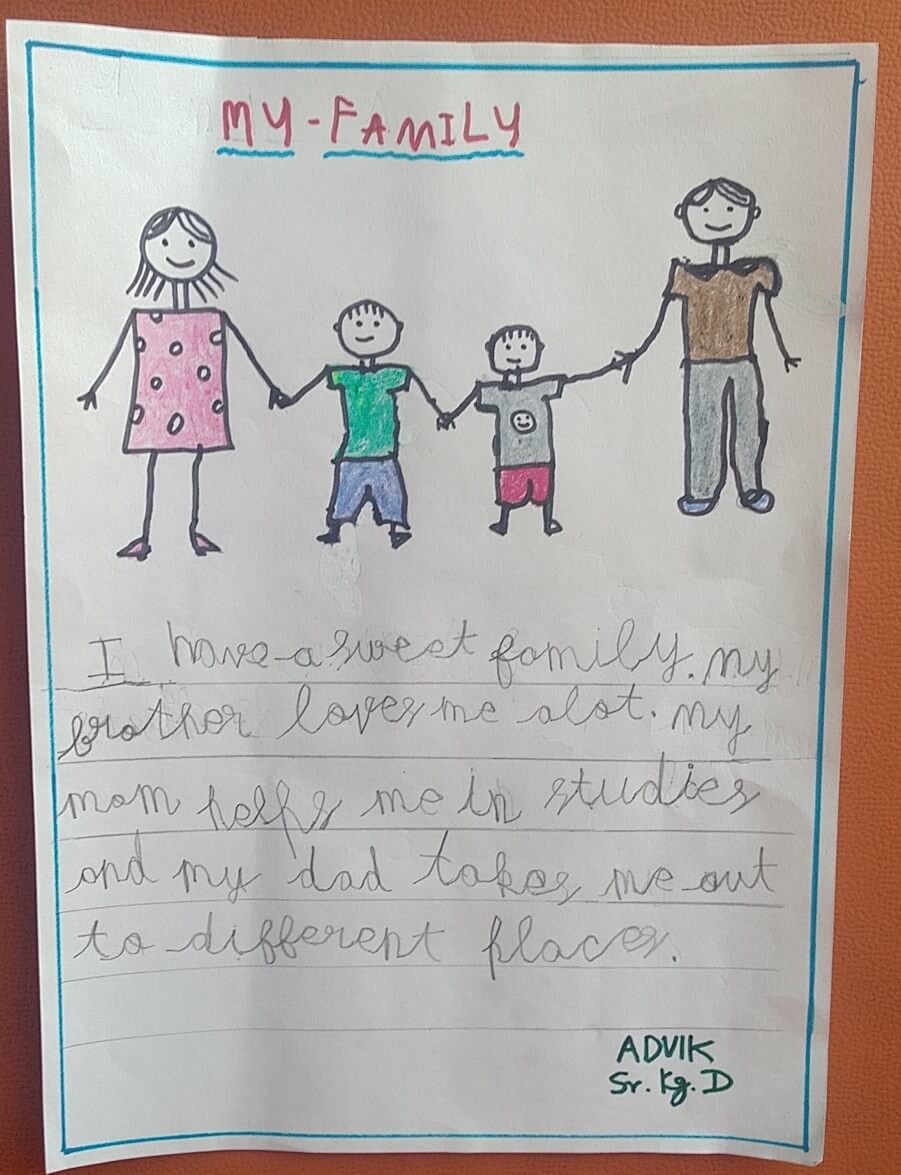 MY-FAMILY
I have a sweet family. my
brother loves me alot. my
mom helps me in studies
and my dad takes me out
to different places.
ADVIK
Sr. Kg. D